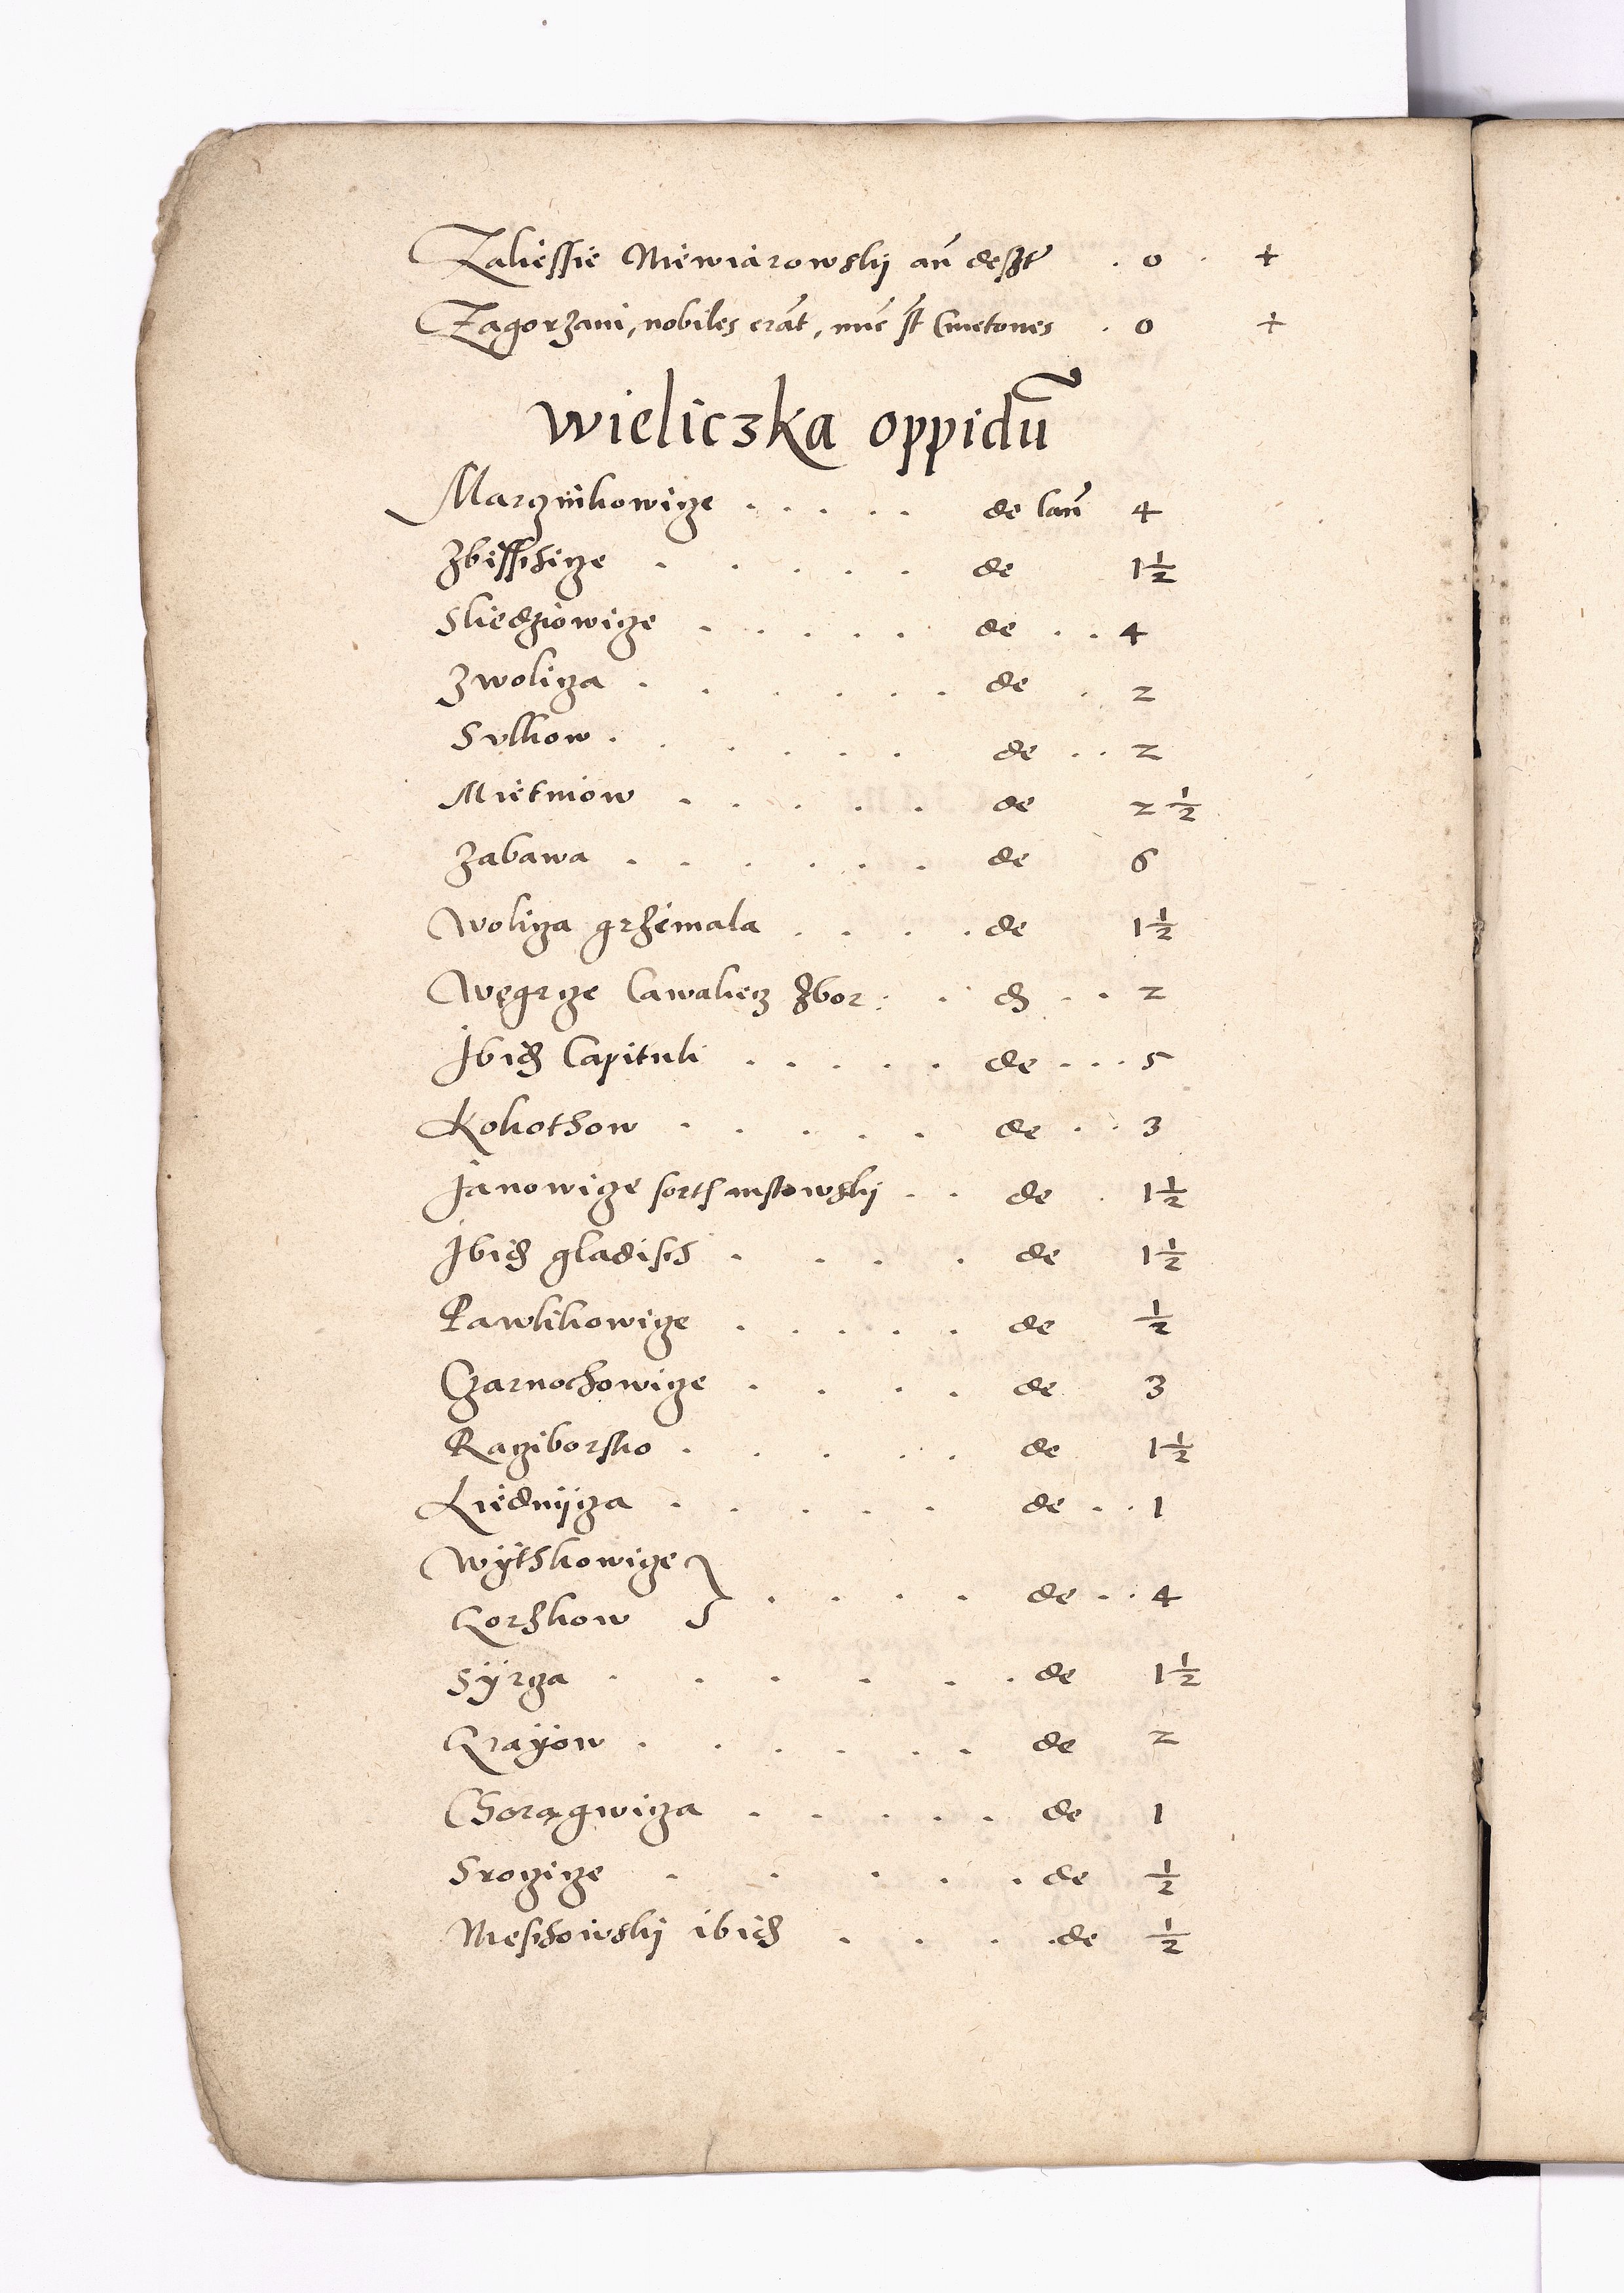 Zaliessie Niewiarowskij an̄ desꝫt · 0 · +
Zagorzani, nobiles erāt, nūc st̄ Cmetones · 0 +
Wieliczka oppidū
Marczinkowicze . . . . . de lan̄ 4
Zbisschicze . . . . . de 1½
Sliedziowicze . . . . . de . . 4
Zwolicza . . . . . . de . 2
Sulkow . . . . . . de . . 2
Mietniow . . . . . de 2½
Zabawa . . . . . . de 6
Wolicza grzemala . . . . de 1½
Węgrcze Cawaliecz Zbor: . . de . . 2
Ibid Capituli . . . . . de . . . 5
Kokothow . . . . . de . . 3
Janowicze sorts . . de . 1½
Ibid gladisch . . . . de 1½
Pawlikowicze . . . . . de ½
Czarnochowicze . . . . de 3
Racziborsko . . . . . de 1½
Liednijcza . . . . . de . . 1
Wÿthkowicze
Gorzkow } . . . . de . . 4
Sÿrcza . . . . . . de 1½
Grayow . . . . . . de 2
Chorągwicza . . . . . de 1
Sroczicze . . . . . de ½
Niesschowskij ibid . . . . de ½